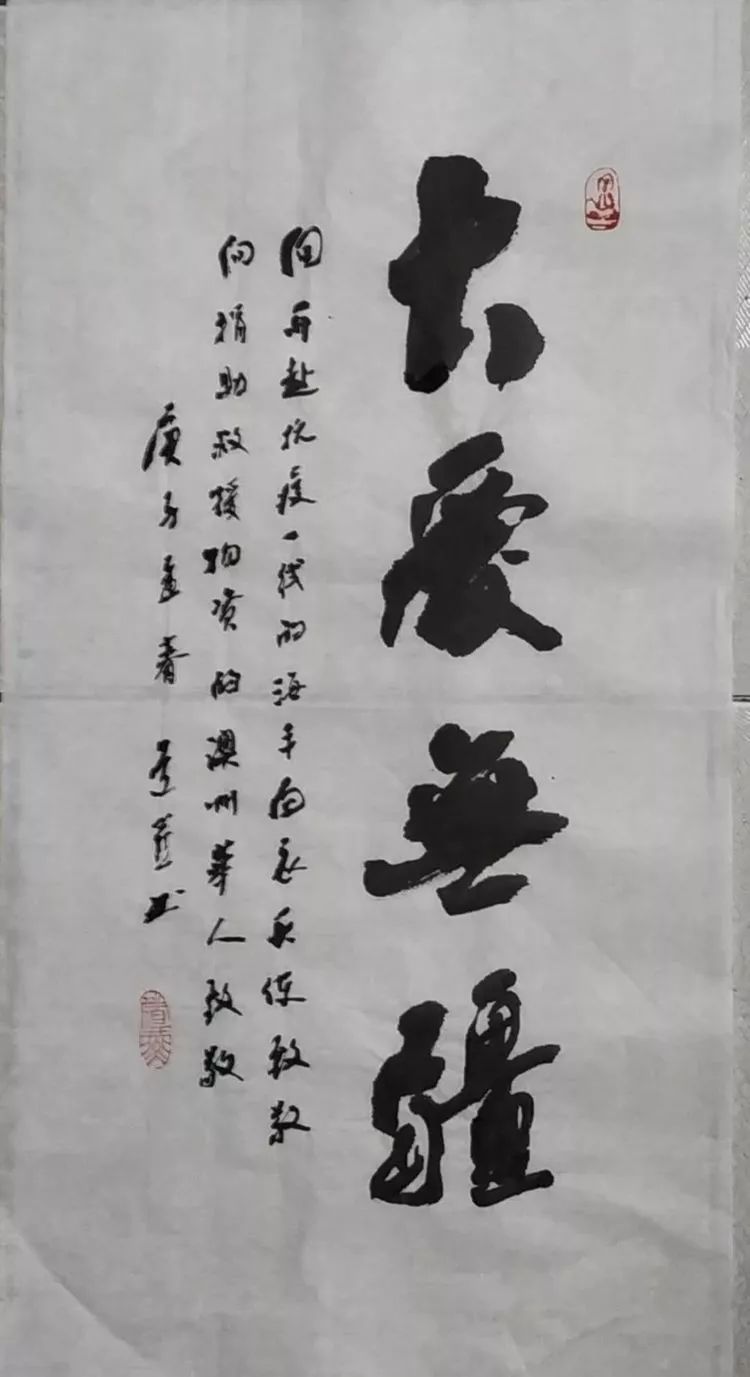 大爱無疆
向再赴抗疫一线的海丰白衣兵体致敬
向捐助救援物资的澳州華人致敬
庚子孟春